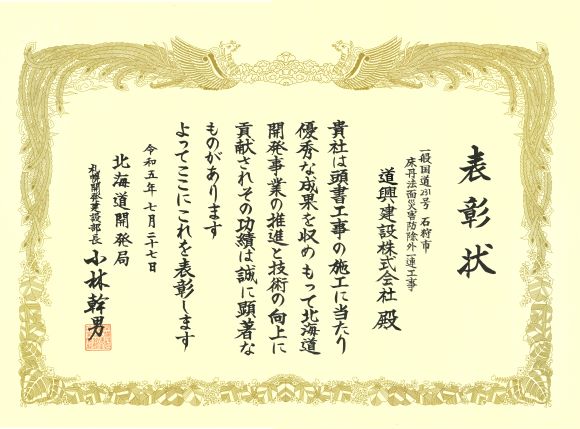 表彰状
一般国道231号 石狩市
床丹法面災害防除外一連工事
道興建設株式会社 殿
貴社は頭書工事の施工に当たり
優秀な成果を収めもって北海道
開発事業の推進と技術の向上に
貢献されその功績は誠に顕著な
ものがあります
よってここにこれを表彰します
令和五年七月二十七日
北海道開発局
札幌開発建設部長 小林幹男